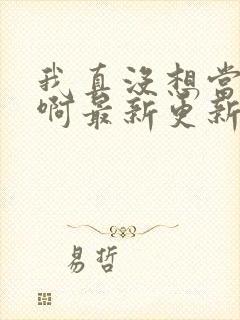 我真没想当
啊最新更新
易哲